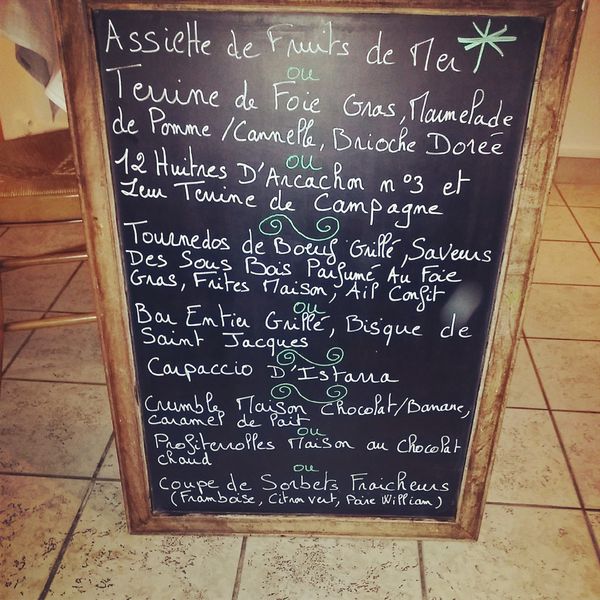 Assiette de Fruits de Mer
ou
Terrine de Foie Gras, Marmelade
de Pomme / Cannelle, Brioche Dorée
ou
12 Huitres D'Arcachon n°3 et
Leur Terrine de Campagne
Tournedos de Boeuf Grillé, Saveurs
Des Sous Bois Parfumé Au Foie
Gras, Frites Maison, Ail Confit
ou
Bar Entier Grillé, Bisque de
Saint Jacques
Carpaccio D'Istarra
Crumble Maison Chocolat/Banane,
Caramel de Lait
ou
Profiterolles Maison au Chocolat
chaud
ou
Coupe de Sorbets Fraicheurs
(Framboise, Citron vert, Poire William)